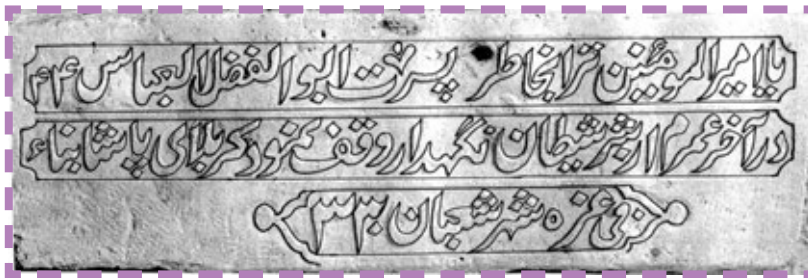 یا امیر المومنین ترا بخاطر پسرت ابوالفضل العباس ۴۴
در آخر عمرم از شر شیطان نگهدار وقف نمود کربلای پاشا بناء
فی غره شهر شعبان